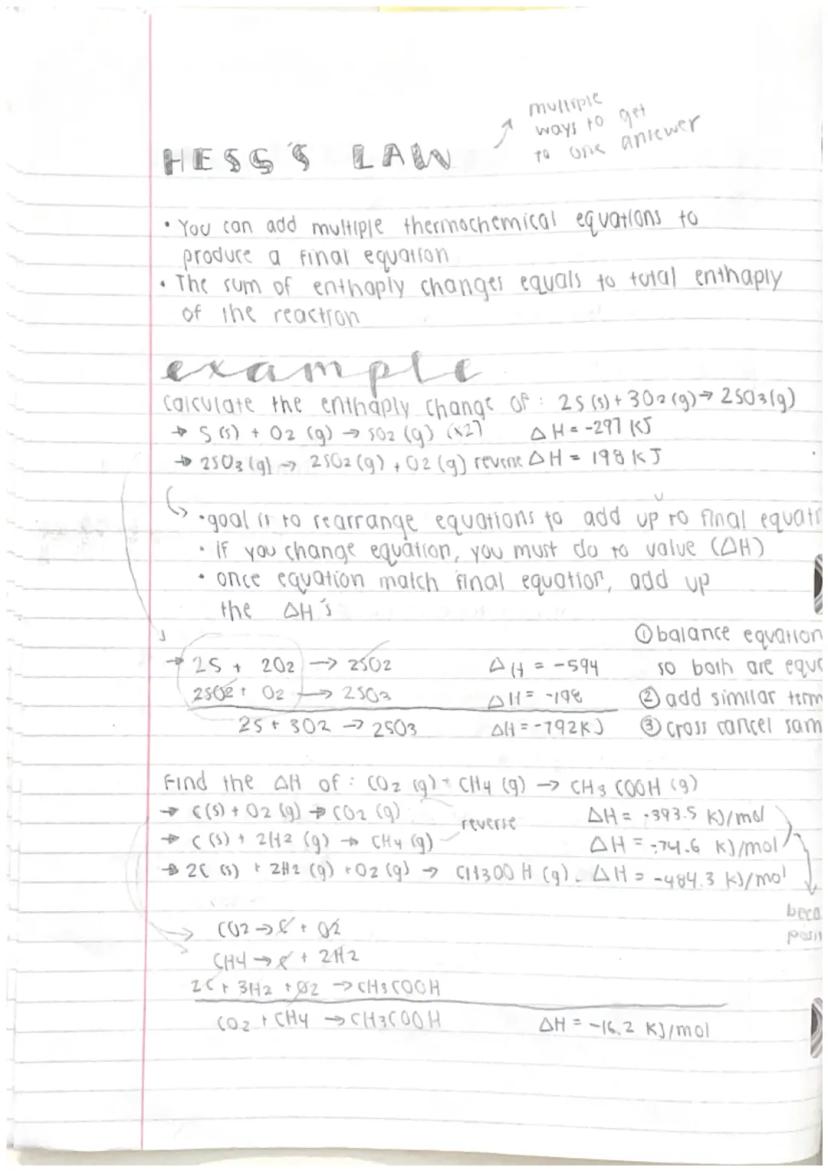 multiple
ways to get
to one answer
HESS'S LAW
• You can add multiple thermochemical equations to
produce a final equation
• The sum of enthaply changes equals to total enthaply
of the reaction
example
calculate the enthaply change of : 2S (s) + 3O2 (g) → 2SO3 (g)
→ S(s) + O2 (g) → SO2 (g) (x2) ΔH = -297 KJ
→ 2SO3 (g) → 2SO2 (g) + O2 (g) reverse ΔH = 198 KJ
• goal is to rearrange equations to add up to final equati
• If you change equation, you must do to value (ΔH)
• once equation match final equation, add up
the ΔH's
① balance equation
so both are equa
→ 2S + 2O2 → 2SO2 ΔH = -594
2SO2 + O2 → 2SO3 ΔH = -198 ② add similar term
2S + 3O2 → 2SO3 ΔH = -792KJ ③ cross cancel sam
Find the ΔH of : CO2 (g) + CH4 (g) → CH3 COOH (g)
→ C(s) + O2 (g) → CO2 (g) ΔH = -393.5 KJ/mol
reverse
→ C (s) + 2H2 (g) → CH4 (g) ΔH = -74.6 KJ/mol
→ 2C (s) + 2H2 (g) + O2 (g) → CH3OO H (g). ΔH = -484.3 KJ/mol
beca
posi
CO2 → C + O2
CH4 → C + 2H2
2C + 3H2 + O2 → CH3COOH
CO2 + CH4 → CH3COOH ΔH = -16.2 KJ/mol